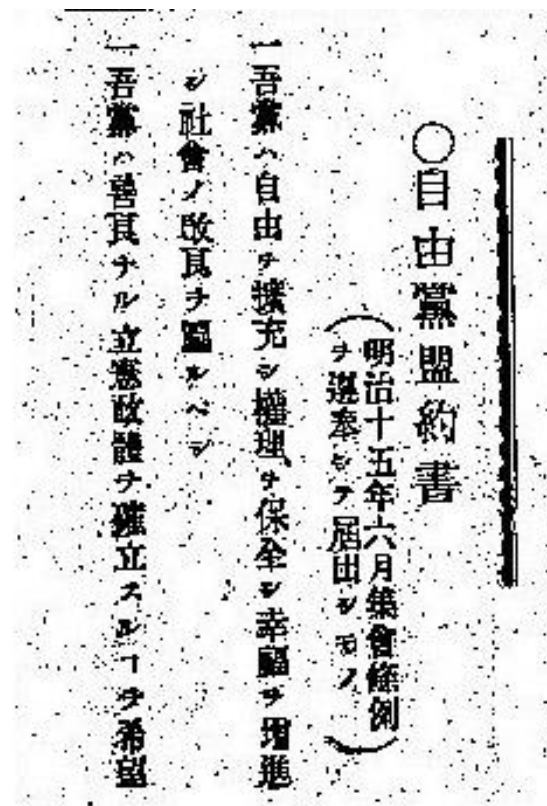 ○自由黨盟約書
(明治十五年六月集會條例
ヲ遵奉シテ届出シモノ)
一吾黨ハ自由ヲ擴充シ權理ヲ保全シ幸福ヲ增進
シ社會ノ改良ヲ圖ルヘシ
一吾黨ハ善良ナル立憲政體ヲ確立スルヿヲ希望